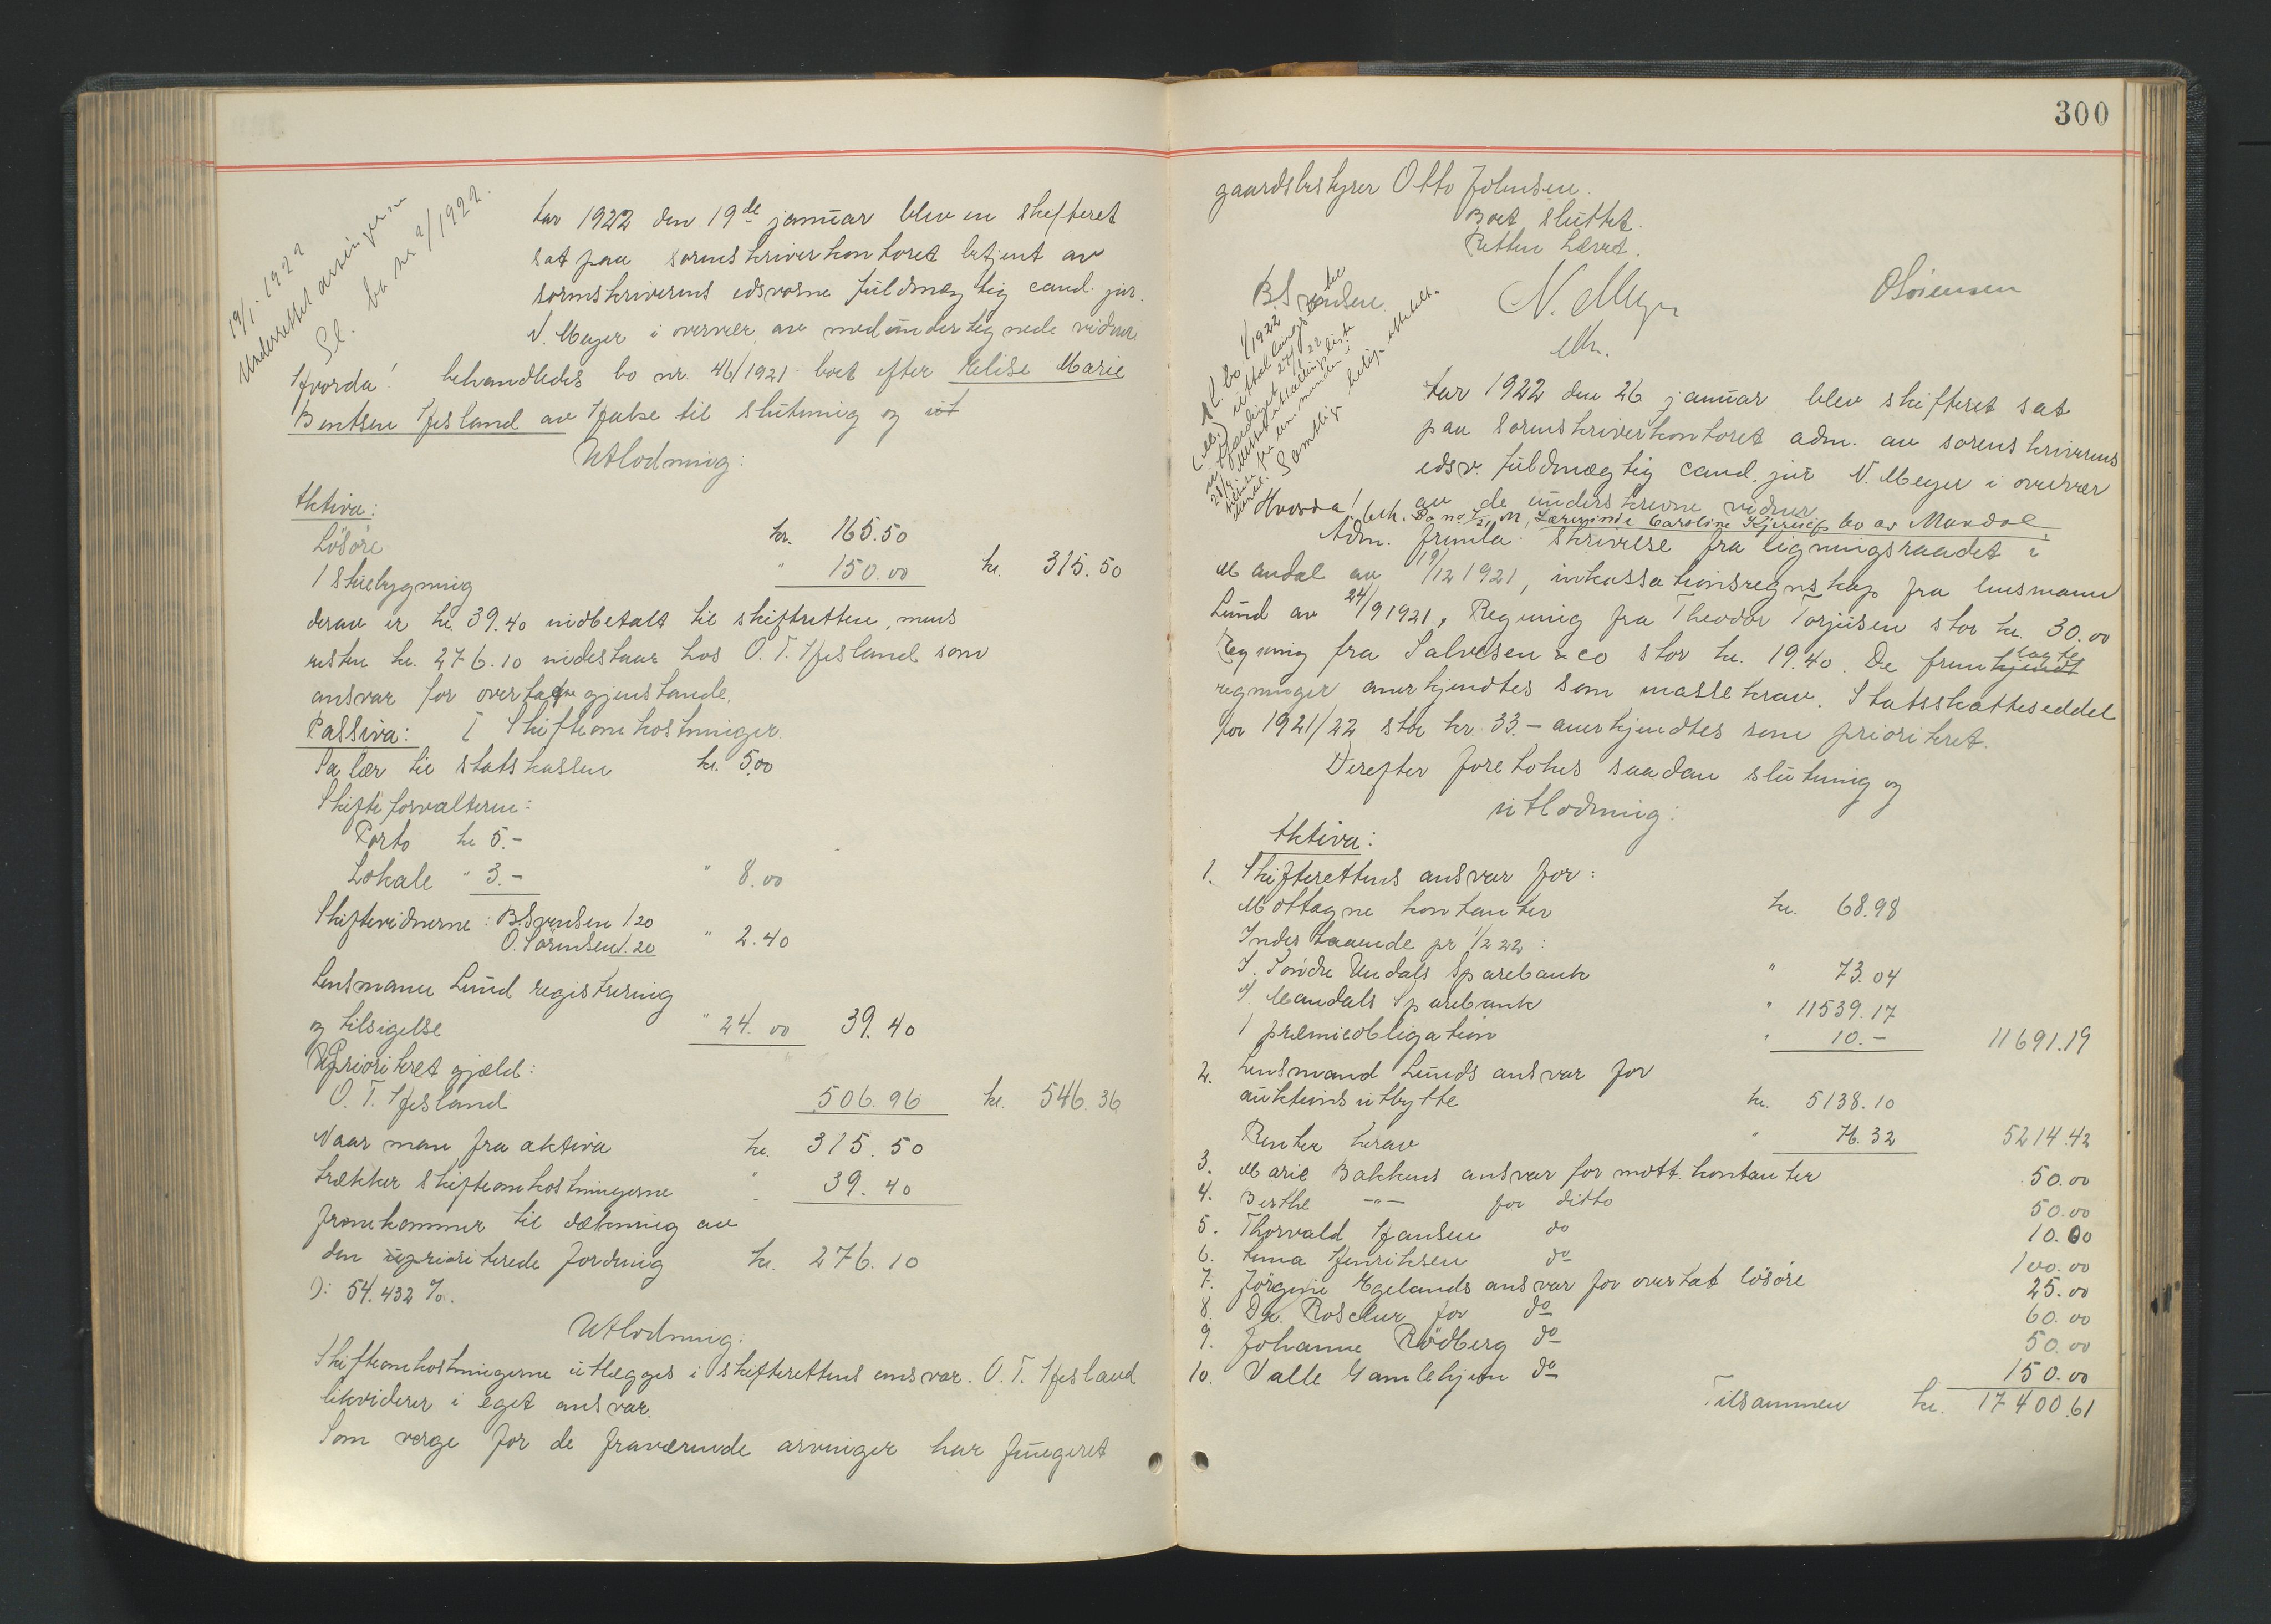 19/1 1922
Underrettet arvingerne
Sl. bo nr 2/1922.
Aar 1922 den 19de januar blev en skifteret
sat paa sorenskriverkontoret betjent av
sorenskriverens edsvorne fuldmægtig cand. jur.
N. Meyer i overvær av medundertegnede vidner.
Hvorda! behandledes bo nr. 46/1921 boet efter Elise Marie
Bentsen Hesland av Halse til slutning og ut
Utlodning:
Aktiva:
Løsøre kr. 165.50
1 skuebygning " 150.00 kr. 315.50
derav er kr. 39.40 indbetalt til skifteretten, mens
resten kr. 276.10 indestaar hos O. T. Hesland som
ansvar for overtagne gjenstande.
Passiva: I Skifteomkostninger
Salær til statskassen kr. 5.00
Skifteforvalteren:
Porto kr 5.-
Lokale " 3.- " 8.00
Skiftevidnerne: B. Svendsen 1.20
O. Sørensen 1.20 " 2.40
Lensmann Lund registrering
og tilsigelse " 24.00 39.40
Uprioritert gjæld:
O. T. Hesland 506.96 kr. 546.36
Naar man fra aktiva kr. 315.50
trækker skifteomkostningerne " 39.40
fremkommer til dækning av
den uprioriterede fordring kr. 276.10
ɔ: 54.432 %.
Utlodning:
Skifteomkostningerne utlægges i skifterettens ansvar. O. T. Hesland
likviderer i eget ansvar.
Som verge for de fraværende arvinger har fungeret
300
gaardsbestyrer Otto Johnsen.
Boet sluttet.
Retten hævet.
B. Svendsen. N. Meyer OSørensen
Mm.
Sl. bo 1/1922
Samtlige beløp utbetalt.
Aar 1922 den 26 januar blev skifteret sat
paa sorenskriverkontoret adm. av sorenskriverens
edsv. fuldmægtig cand. jur N. Meyer i overvær
av de underskrevne vidner
Hvorda! beh. Bo no 1/21 M, Lærerinde Caroline Kjerulfs bo av Mandal.
Adm. fremla: Skrivelse fra ligningsraadet i
Mandal av 19/12 1921, inkassationsregnskap fra lensmann
Lund av 24/9 1921, Regning fra Theodor Torjusen stor kr. 30.00
Regning fra Salvesen & co stor kr. 19.40. De fremlagte kjendt
regninger anerkjendtes som massekrav. Statsskatteseddel
for 1921/22 stor kr. 33.- anerkjendtes som prioritert.
Derefter foretokes saadan slutning og
utlodning:
Aktiva:
1. Skifterettens ansvar for:
Mottagne kontanter kr. 68.98
Indestaaende pr 1/2 22:
I. Søndre Undals Sparebank " 73.04
I. Mandals Sparebank " 11539.17
1 præmieobligation " 10.- 11691.19
2. Lensmand Lunds ansvar for
auktionsutbytte kr. 5138.10
Renter herav " 76.32 5214.42
3. Marie Bakkens ansvar for mott. kontanter 50.00
4. Berthe -"- for ditto 50.00
5. Thorvald Hansen do 10.00
6. Anna Henriksen do 100.00
7. Jørgine Egelands ansvar for overtat løsøre 25.00
8. Dr. Roscher for do 60.00
9. Johanne Rödberg do 50.00
10. Valle Gamlehjem do 150.00
Tilsammen kr. 17400.61